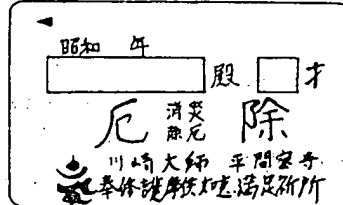 昭和 年
殿 才
厄 消災除厄 除
川崎大師 平間寺
如意満足祈所